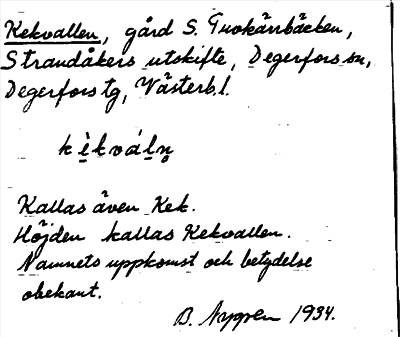 Kekvallen, gård S. Tvokärrbäcken,
Strandåkers utskifte, Degerfors sn,
Degerfors tg, Västerb.l.
kèkváln̥
Kallas även Kek.
Höjden kallas Kekvallen.
Namnets uppkomst och betydelse
obekant.
B. Nygren 1934.